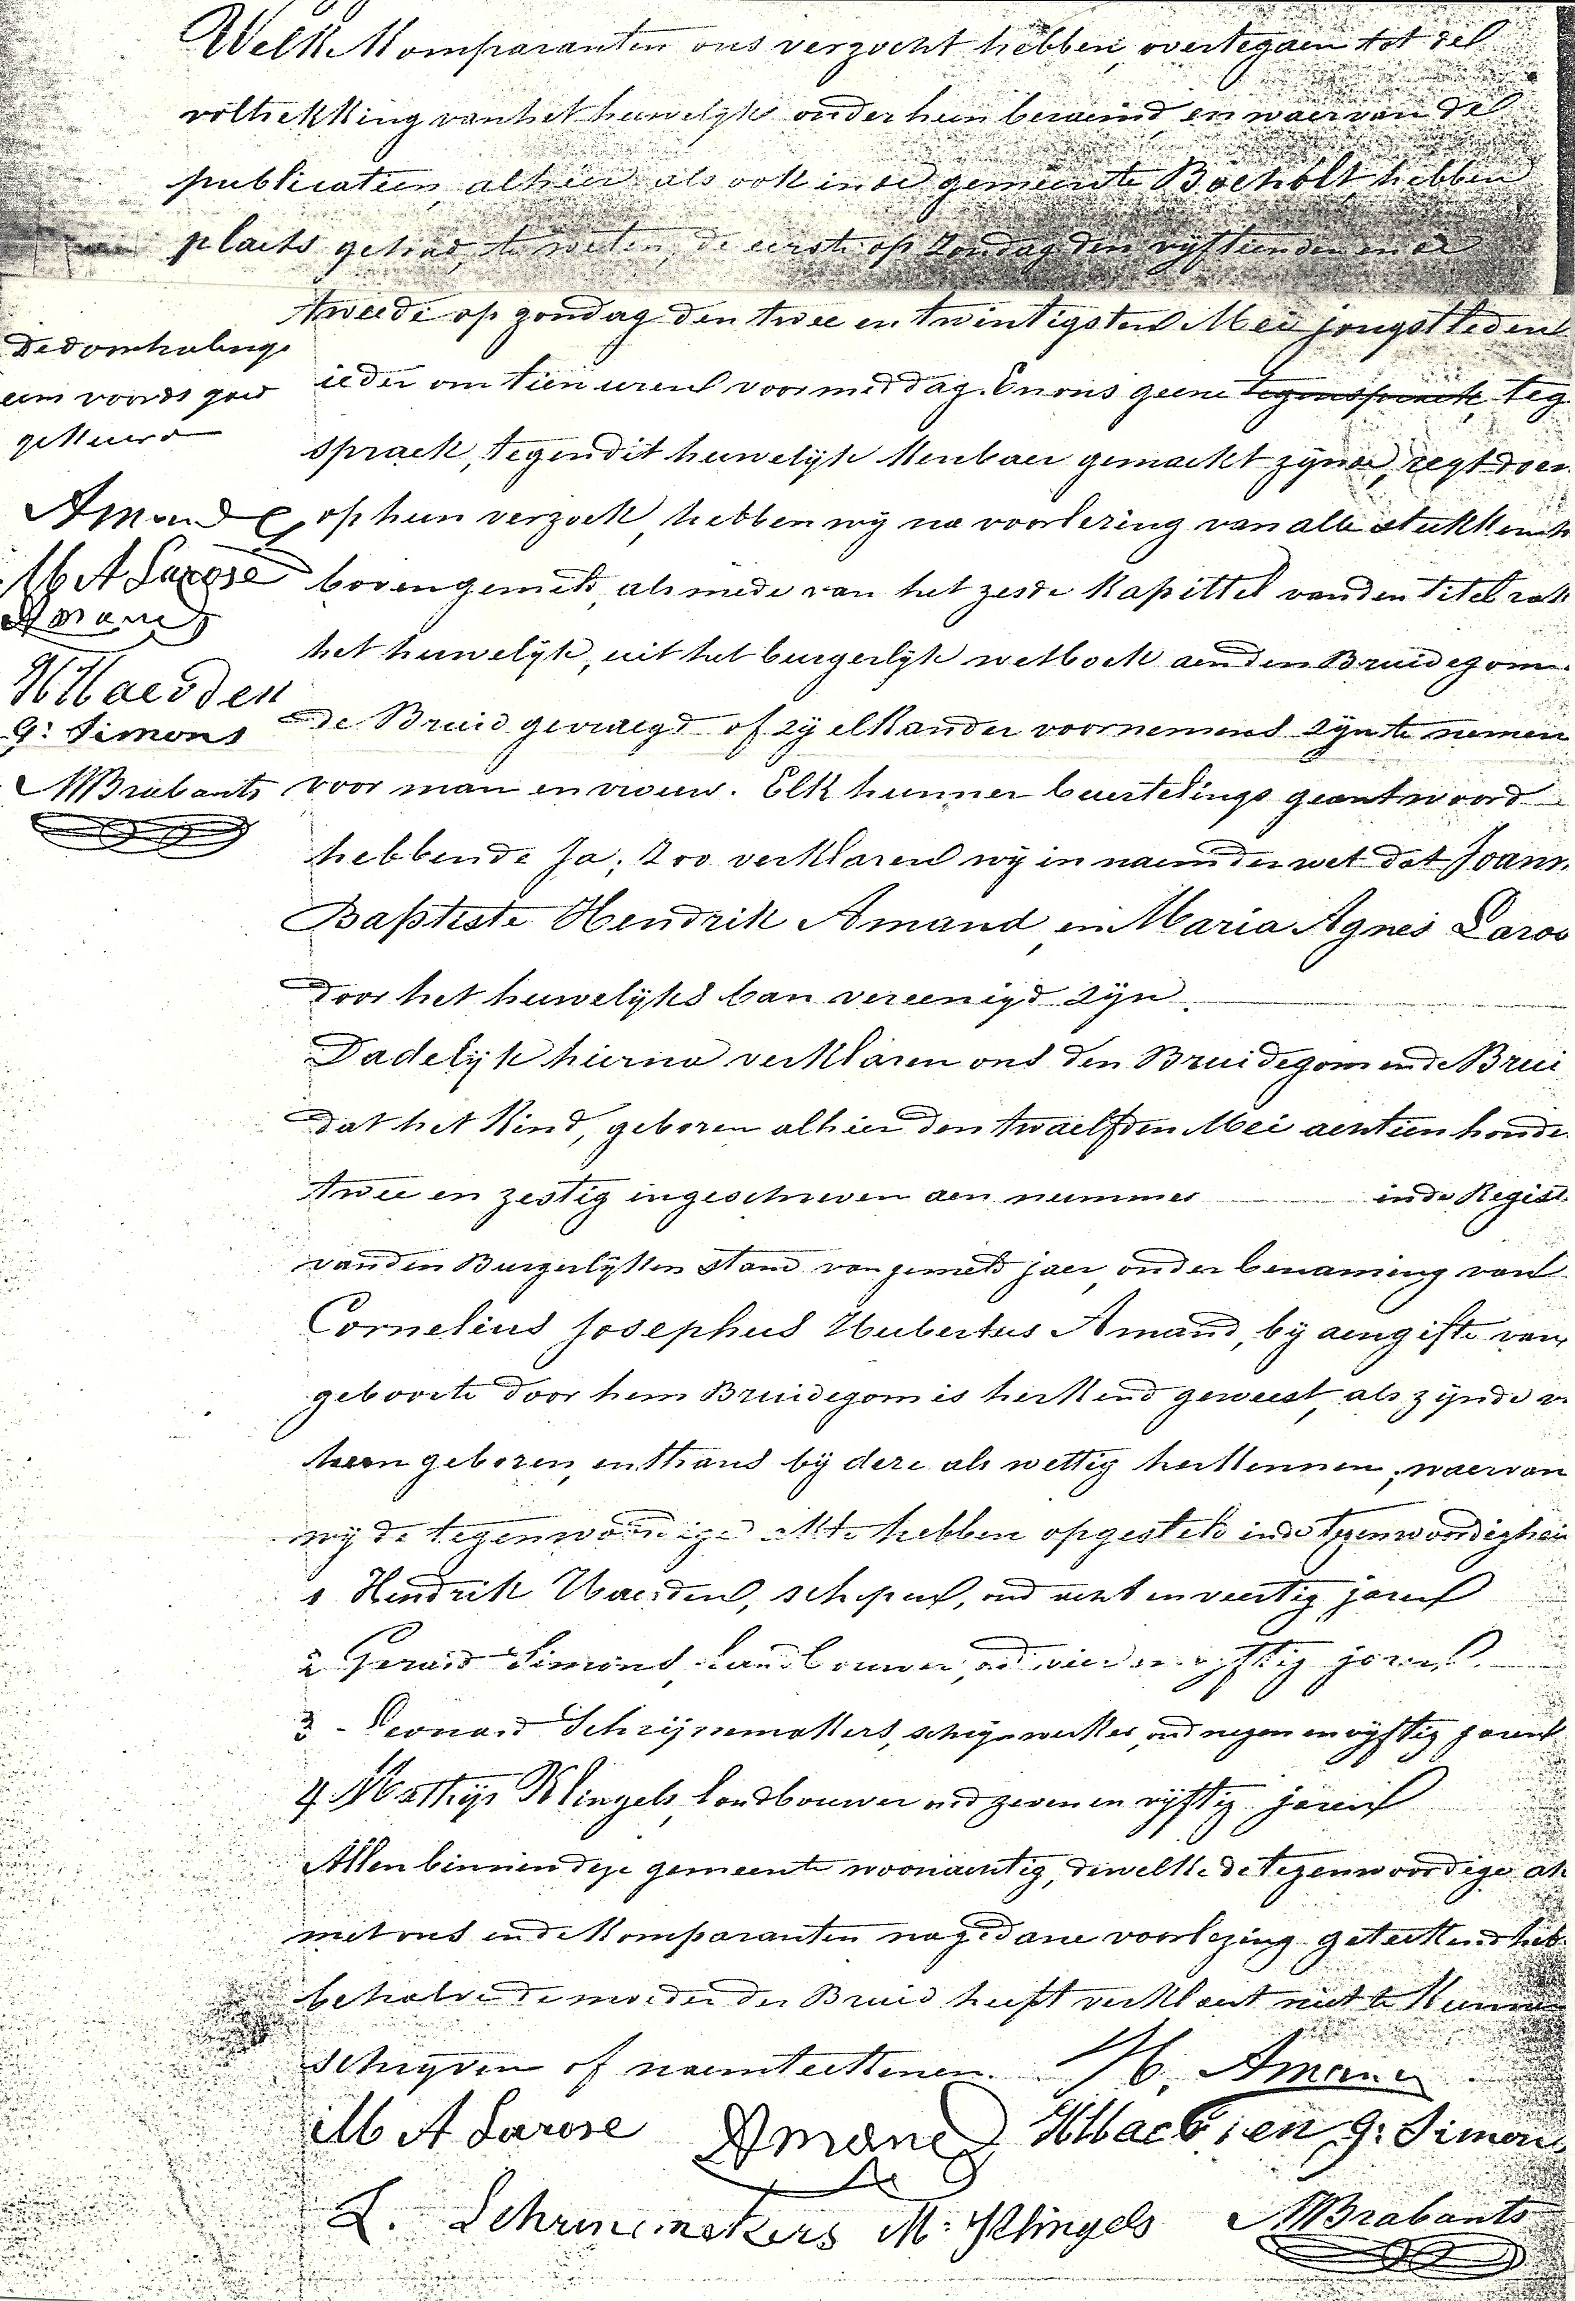 Welk Komparanten ons verzocht hebben, overtegaen tot del
voltrekking van het huwelijk onder hun beraemd, en waervan del
publicatien, alhier als ook in de gemeente Bocholt, hebben
plaets gehad, te weten, de eerste op Zondag den vyftienden en de
tweede op zondag den twee en twintigsten Mei jongstleden
ieder om tien uren voormiddag. En ons geene tegenspraek, teg
spraek, tegen dit huwelijk kenbaer gemaekt zijnde, regt doen
op hun verzoek, hebben wij na voorlezing van alle stukken h
bovengemeld, alsmede van het zesde kapittel van den titel rak
het huwelijk, uit het burgerlijk wetboek aen den Bruidegom
de Bruid gevraegd of zij elkander voornemens zyn te nemen
voor man en vrouw. Elk hunner beurtelings geantwoord
hebbende Ja; Zoo verklaren wij in naem der wet dat Joann
Baptiste Hendrik Amand, en Maria Agnes Laroo
door het huwelijks ban vereenigd zijn.
Dadelijk hierna verklaren ons den Bruidegom en de Brui
dat het Kind, geboren alhier den twaelfden Mei aentien honde
twee en zestig ingeschreven aen nummer in de Regist
van den Burgerlijken stand van gemeld jaer, onder benaming van
Cornelius Josephus Hubertus Amand, bij aengifte van
geboorte door hem Bruidegom is herkend geweest, als zijnde v
heen geboren, en thans bij deze als wettig herkennen, waervan
wij de tegenwoordige akte hebben opgesteld in de tegenwoordighei
1 Hendrik Haesden, schepen, oud acht en veertig jaren
2 Gerard Simons, Landbouwer, oud vier en vyftig jaren
3 - Leonard Schrijnemakers, schijnwerker, oud negen en vyftig jaren
4 Mathijs Klingels, landbouwer oud zeven en vyftig jaren
Allen binnen deze gemeente woonachtig, dewelke de tegenwoordige ak
met ons en de komparanten na gedane voorlezing geteekend heb
behalve de moeder der Bruid heeft verklaert niet te kunnen
schryven of naemteekenen. H. Amand
M A Larose Amand HHaesden G: Simon
L. Schrinemakers M: Klingels MBrabants
De doorhalinge
eens woords goed
gekeurd
Amand
M A Larose
Amand
HHaesden
G: Simons
MBrabants